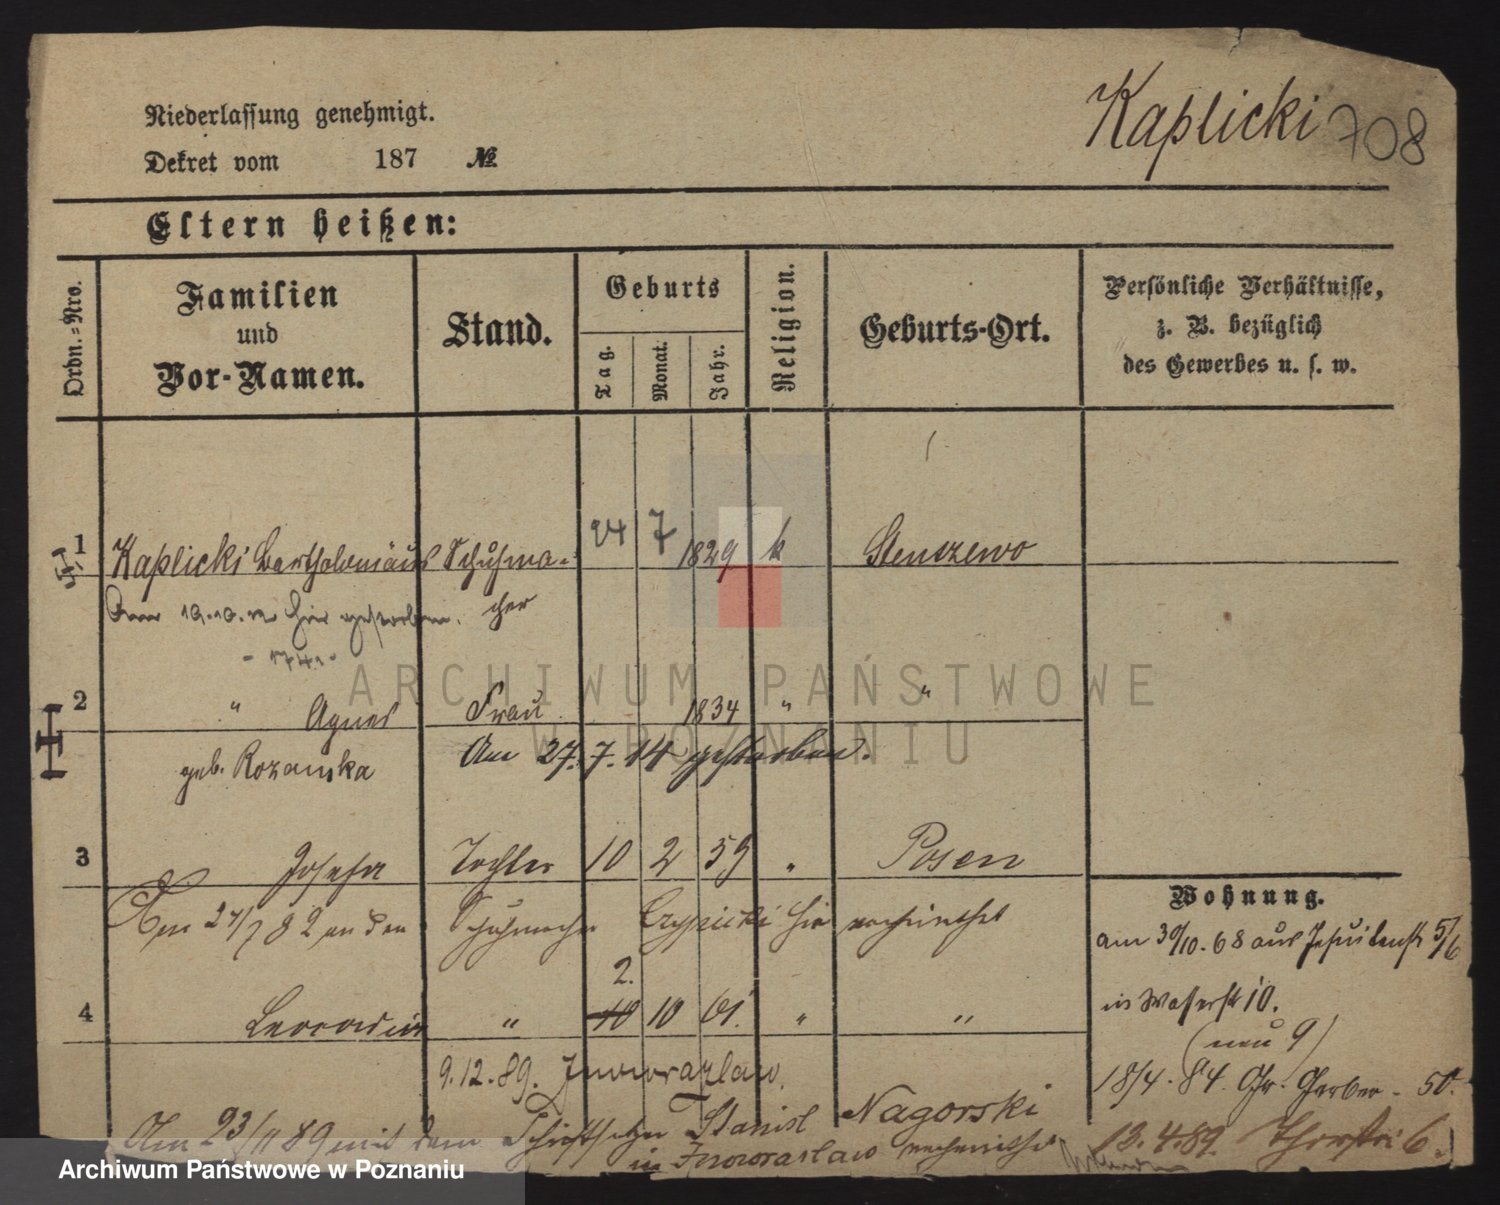 Niederlassung genehmigt.
Dekret vom 187 №
Kaplicki 708
Eltern heißen:
Ordn.=Nro.
Familien
und
Vor-Namen.
Stand.
Geburts
Tag.
Monat.
Jahr.
Religion.
Geburts-Ort.
Persönliche Verhältnisse,
z. B. bezüglich
des Gewerbes u. s. w.
1 Kaplicki Bartholomäus Schuhma= 24 7 1829 k Stenszewo
cher
Am 19.10. hier gestorben.
2 " Agnes Frau 1834 " "
geb. Rozanska
Am 27.7.14 gestorben.
3 Josefa Tochter 10 2 59 " Posen
Am 27/7 82 an den Schuhmacher Czypicki hier verheirathet
2.
4 Leocadia " 10 10 61. " "
9.12.89. Inowrazlaw.
Am 23/11 89 mit dem Schriftsetzer Stanisl Nagorski
in Inowraslaw verheirathet
Wohnung.
am 30/10.68 aus Jesuitenstr 5/6
in Wasserstr 10.
(neu 9)
18/4.84. Gr. Gerber - 50.
13.4.89. 6.
ARCHIWUM PAŃSTWOWE
W POZNANIU
Archiwum Państwowe w Poznaniu